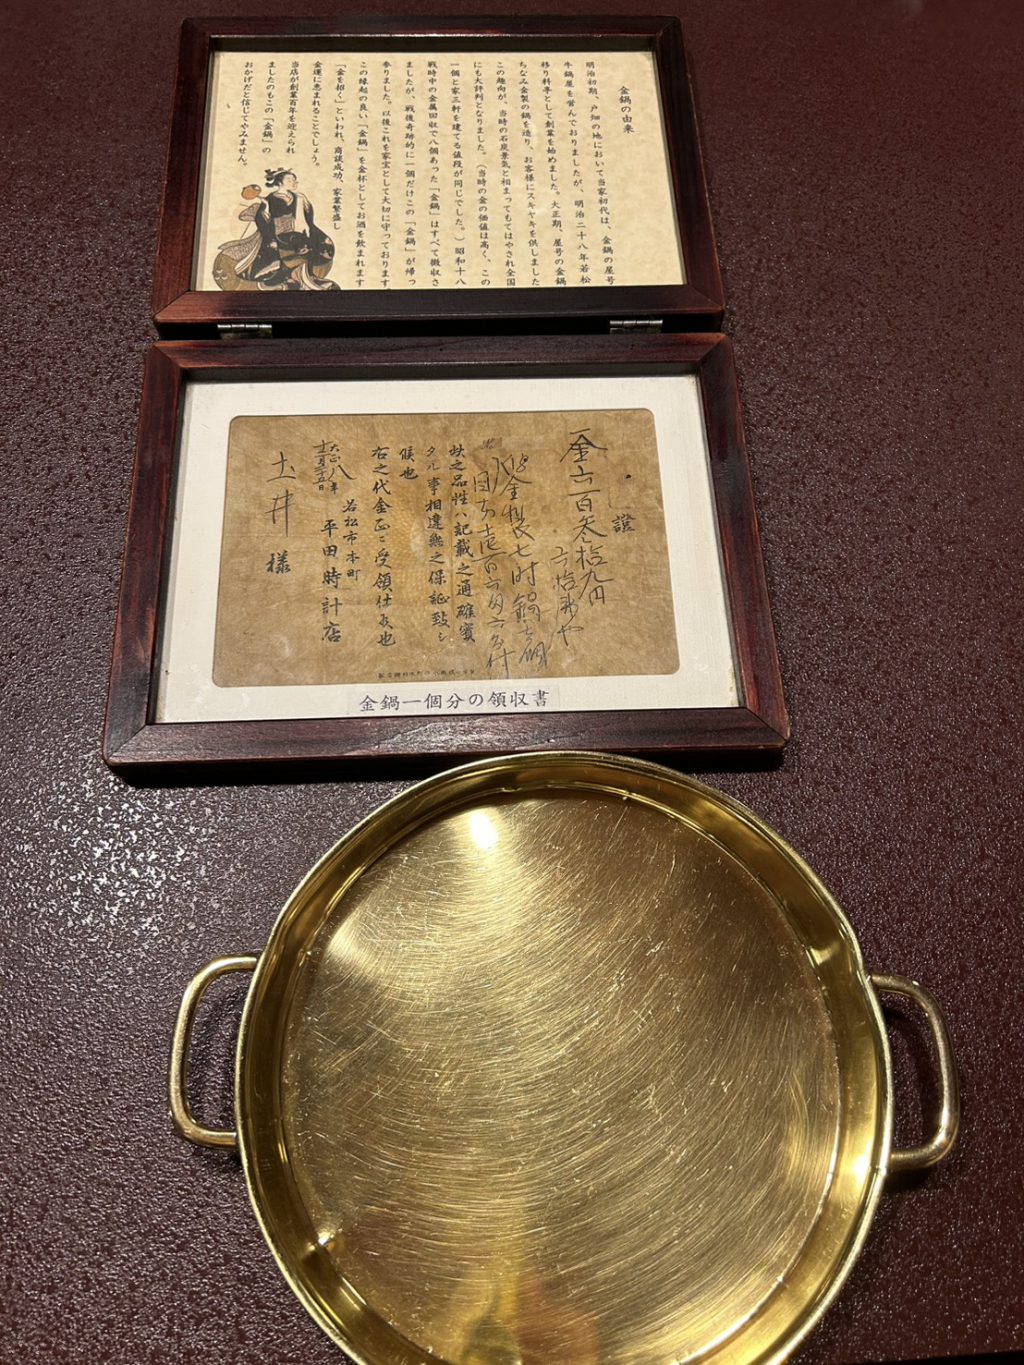 金鍋の由来
明治初期、戸畑の地において当家初代は、金鍋の屋号
牛鍋屋を営んでおりましたが、明治二十八年若松
移り料亭として創業を始めました。大正期、屋号の金鍋
ちなみ金製の鍋を造り、お客様にスキヤキを供しました
この趣向が、当時の石炭景気と相まってもてはやされ全国
にも大評判となりました。(当時の金の価値は高く、この
一個と家三軒を建てる値段が同じでした。)昭和十八
戦時中の金属回収で八個あった「金鍋」はすべて徴収さ
ましたが、戦後奇跡的に一個だけこの「金鍋」が帰っ
参りました。以後これを家宝として大切に守っております
この縁起の良い「金鍋」を金杯としてお酒を飲まれます
「金を招く」といわれ、商談成功、家業繁盛し
金運に恵まれることでしょう。
当店が創業百年を迎えられ
ましたのもこの「金鍋」の
おかげだと信じてやみません。
證
金六百参拾九円
六拾銭や
18金製七吋鍋壱個
目方壱百六匁六分付
之品性ハ記載之通確實
タル事相違無之保証致シ
候也
右之代金正ニ受領仕候也
大正八年
若松市本町
平田時計店
土井様
金鍋一個分の領収書